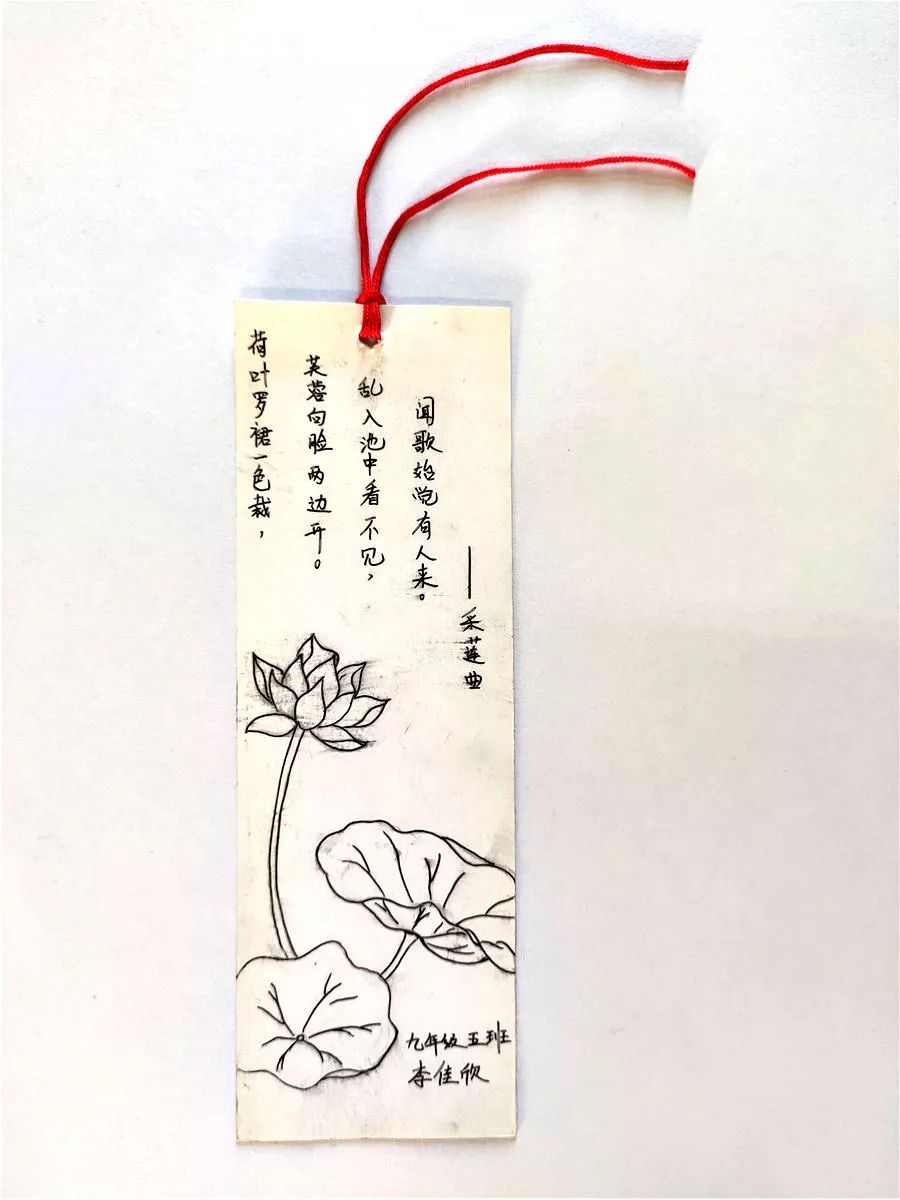 荷叶罗裙一色裁，
芙蓉向脸两边开。
乱入池中看不见，
闻歌始觉有人来。
——采莲曲
九年级五班
李佳欣